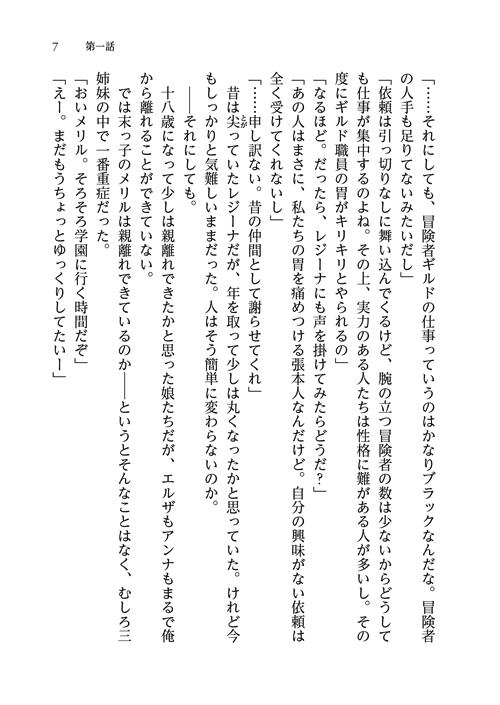 7　第一話
「……それにしても、冒険者ギルドの仕事っていうのはかなりブラックなんだな。冒険者
の人手も足りてないみたいだし」
「依頼は引っ切りなしに舞い込んでくるけど、腕の立つ冒険者の数は少ないからどうして
も仕事が集中するのよね。その上、実力のある人たちは性格に難がある人が多いし。その
度にギルド職員の胃がキリキリとやられるの」
「なるほど。だったら、レジーナにも声を掛けてみたらどうだ？」
「あの人はまさに、私たちの胃を痛めつける張本人なんだけど。自分の興味がない依頼は
全く受けてくれないし」
「……申し訳ない。昔の仲間として謝らせてくれ」
昔は尖っていたレジーナだが、年を取って少しは丸くなったかと思っていた。けれど今
もしっかりと気難しいままだった。人はそう簡単に変わらないのか。
――それにしても。
十八歳になって少しは親離れできたかと思った娘たちだが、エルザもアンナもまるで俺
から離れることができていない。
では末っ子のメリルは親離れできているのか――というとそんなことはなく、むしろ三
姉妹の中で一番重症だった。
「おいメリル。そろそろ学園に行く時間だぞ」
「えー。まだもうちょっとゆっくりしてたいー」